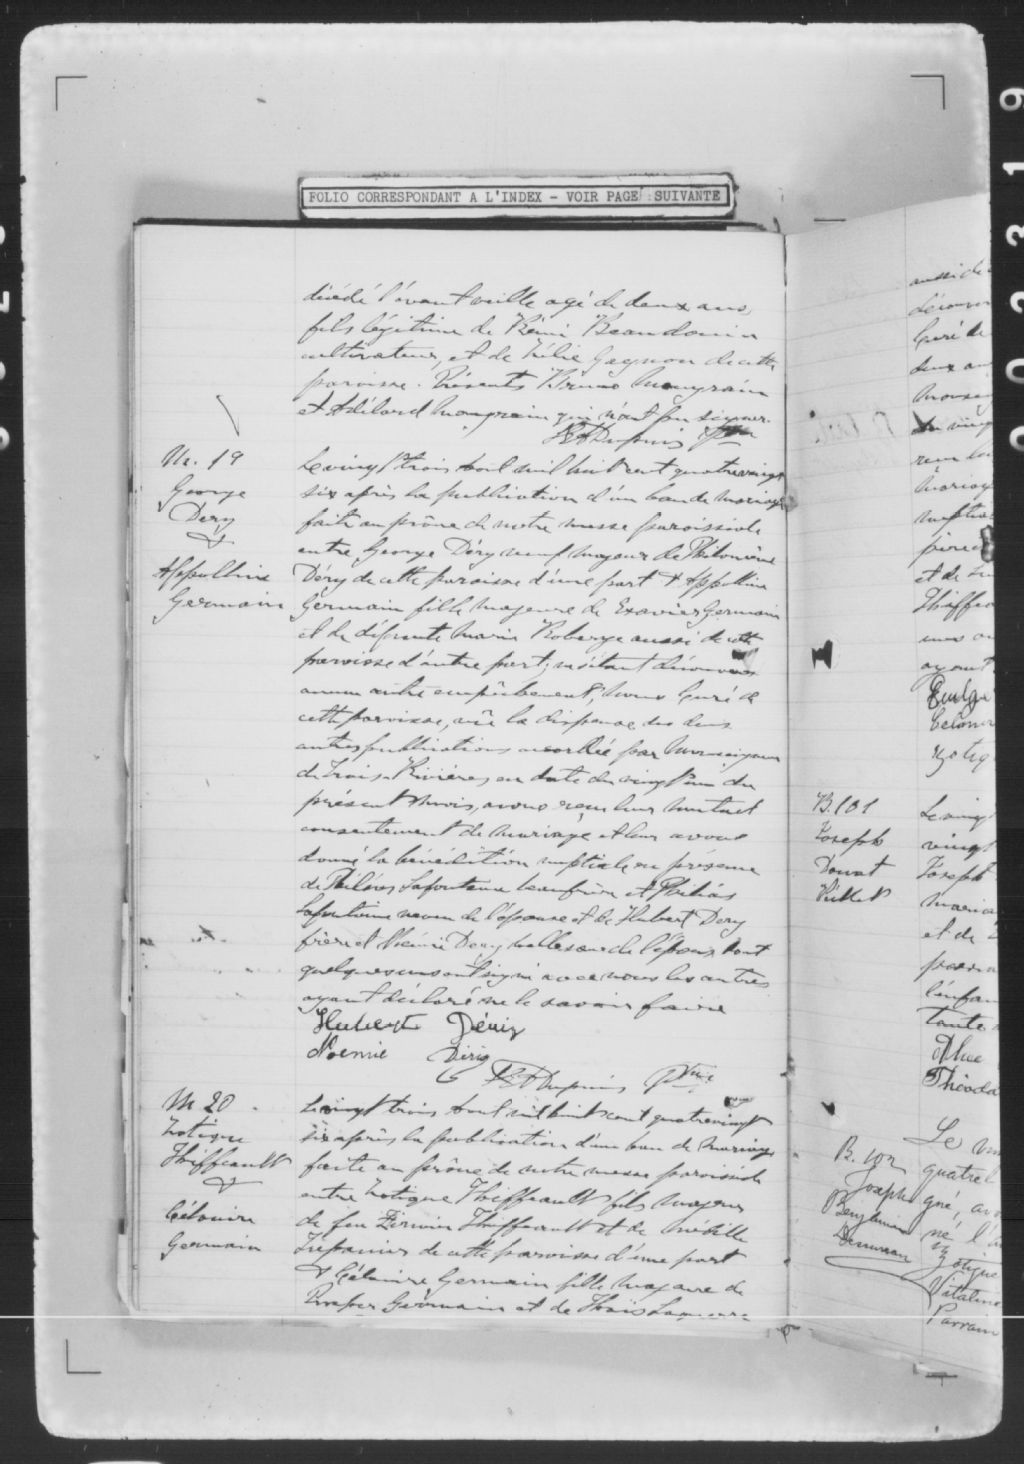 FOLIO CORRESPONDANT A L'INDEX - VOIR PAGE SUIVANTE
décédé l'avant veille agé de deux ans,
fils légitime de Rémi Beaudouin
cultivateur, et de Zélie Gagnon de cette
paroisse. Présents Bruno Mongrain
et Adélard Mongrain qui n'ont pu signer.
Dupuis Ptre
M. 19
George
Déry
&
Appolline
Germain
Le vingt trois Aout mil huit cent quatrevingt
six après la publication d'un ban de mariage
faite au prône de notre messe paroissiale
entre George Déry veuf majeur de Philomène
Déry de cette paroisse d'une part & Appolline
Germain fille majeure de Exavier Germain
et de défunte Marie Roberge aussi de cette
paroisse d'autre part; ne s'étant découvert
aucun autre empêchement, nous Curé de
cette paroisse, vû la dispense des deux
autres publications accordée par Monseigneur
de Trois-Rivières en date du vingt un du
présent mois, avons reçu leur mutuel
consentement de mariage et leur avons
donné la bénédiction nuptiale en présence
de Lafontaine beaufrère et
Lafontaine neveu de l'épouse et de Hubert Dery
frère et Noémie Dery bellesoeur de l'époux dont
quelques uns ont signé avec nous les autres
ayant déclaré ne le savoir faire
Hubert Déry
Noemie Diry
Dupuis Ptre
M 20
Zotique
Thiffeault
&
Célanire
Germain
Le vingt trois Aout mil huit cent quatrevingt
six après la publication d'un ban de mariage
faite au prône de notre messe paroissiale
entre Zotique Thiffeault fils majeur
de feu Firmin Thiffeault et de
Trépanier de cette paroisse d'une part
& Célanire Germain fille majeure de
Prosper Germain et de Thaïs
aussi de
Curé de
deux
du ving
mariag
et de
Thiffea
ayant
zotiq
B. 101
Joseph
Donat
Le vingt
vingt
Joseph
et de
l'enfan
tante
Théoda
B. 102
Joseph
Benjamin
Le
quatre
gné,
né l'
Zotique
Vitaline
Parrain